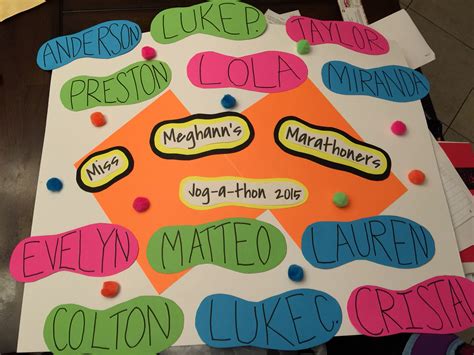 ANDERSON
LUKE P.
TAYLOR
PRESTON
LOLA
MIRANDA
Miss
Meghann's
Marathoners
Jog-a-thon 2015
EVELYN
MATTEO
LAUREN
COLTON
LUKE C.